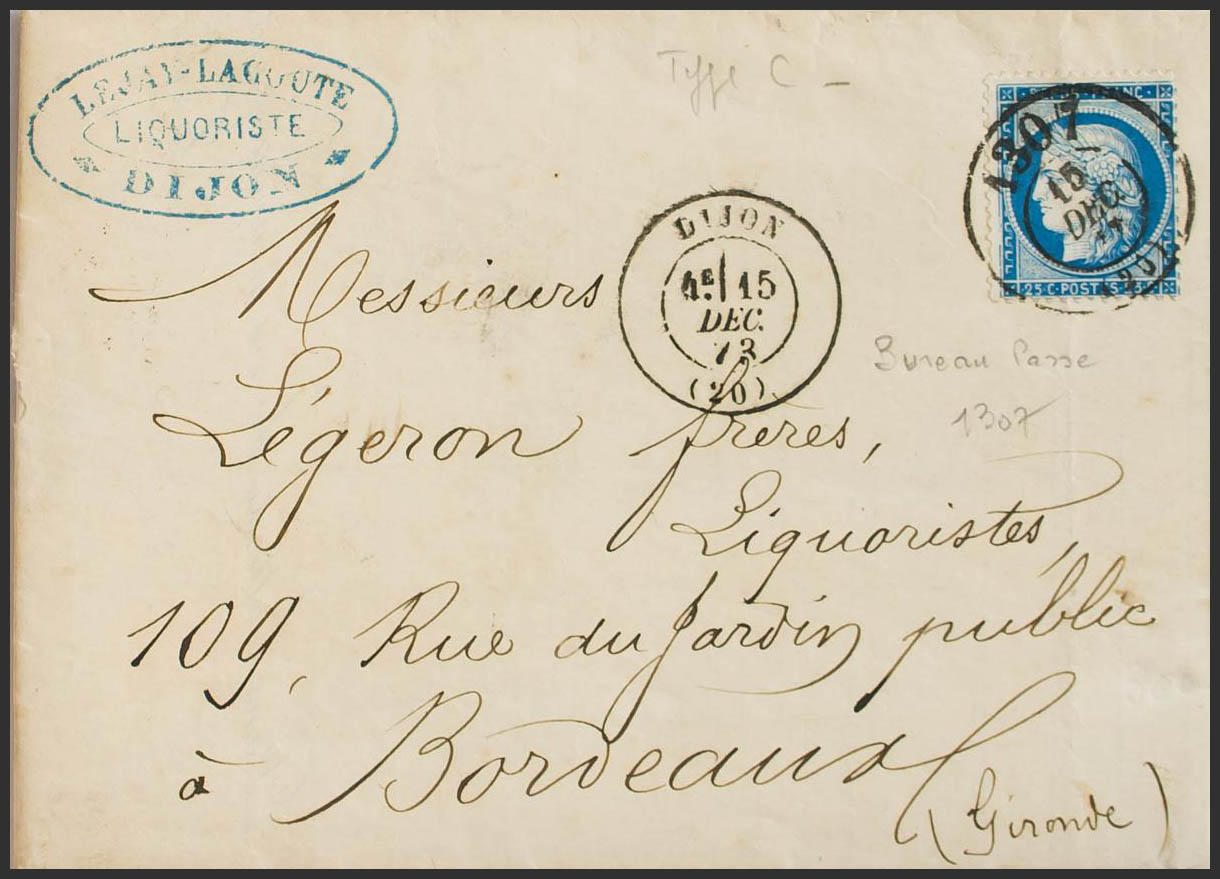 LEJAY-LAGOUTE
LIQUORISTE
DIJON
Type C -
1307
15
DEC.
(20)
25 C. POSTES 25
DIJON
1E 15
DEC.
73
(20)
Messieurs
Bureau Passe
1307
Légeron frères,
Liquoristes,
109, Rue du Jardin public
à Bordeaux
(Gironde)